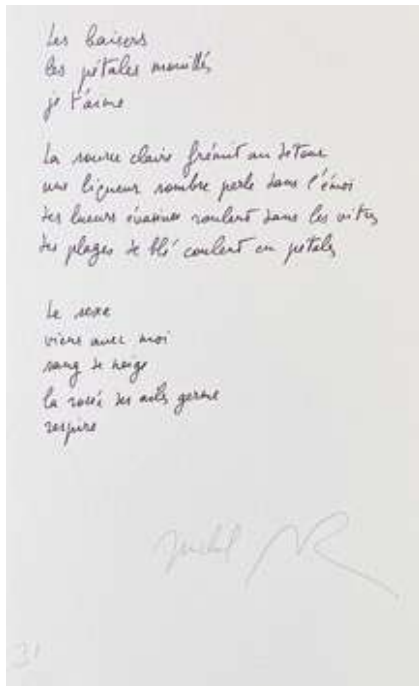 Les baisers
les pétales mouillés
je t'aime
La source claire frémit au detour
une liqueur sombre perle dans l'émoi
des lueurs roulent dans les vitres
des plages de blé coulent en pétales
Le sexe
viens avec moi
sang de neige
la rosée des germe
respire
31